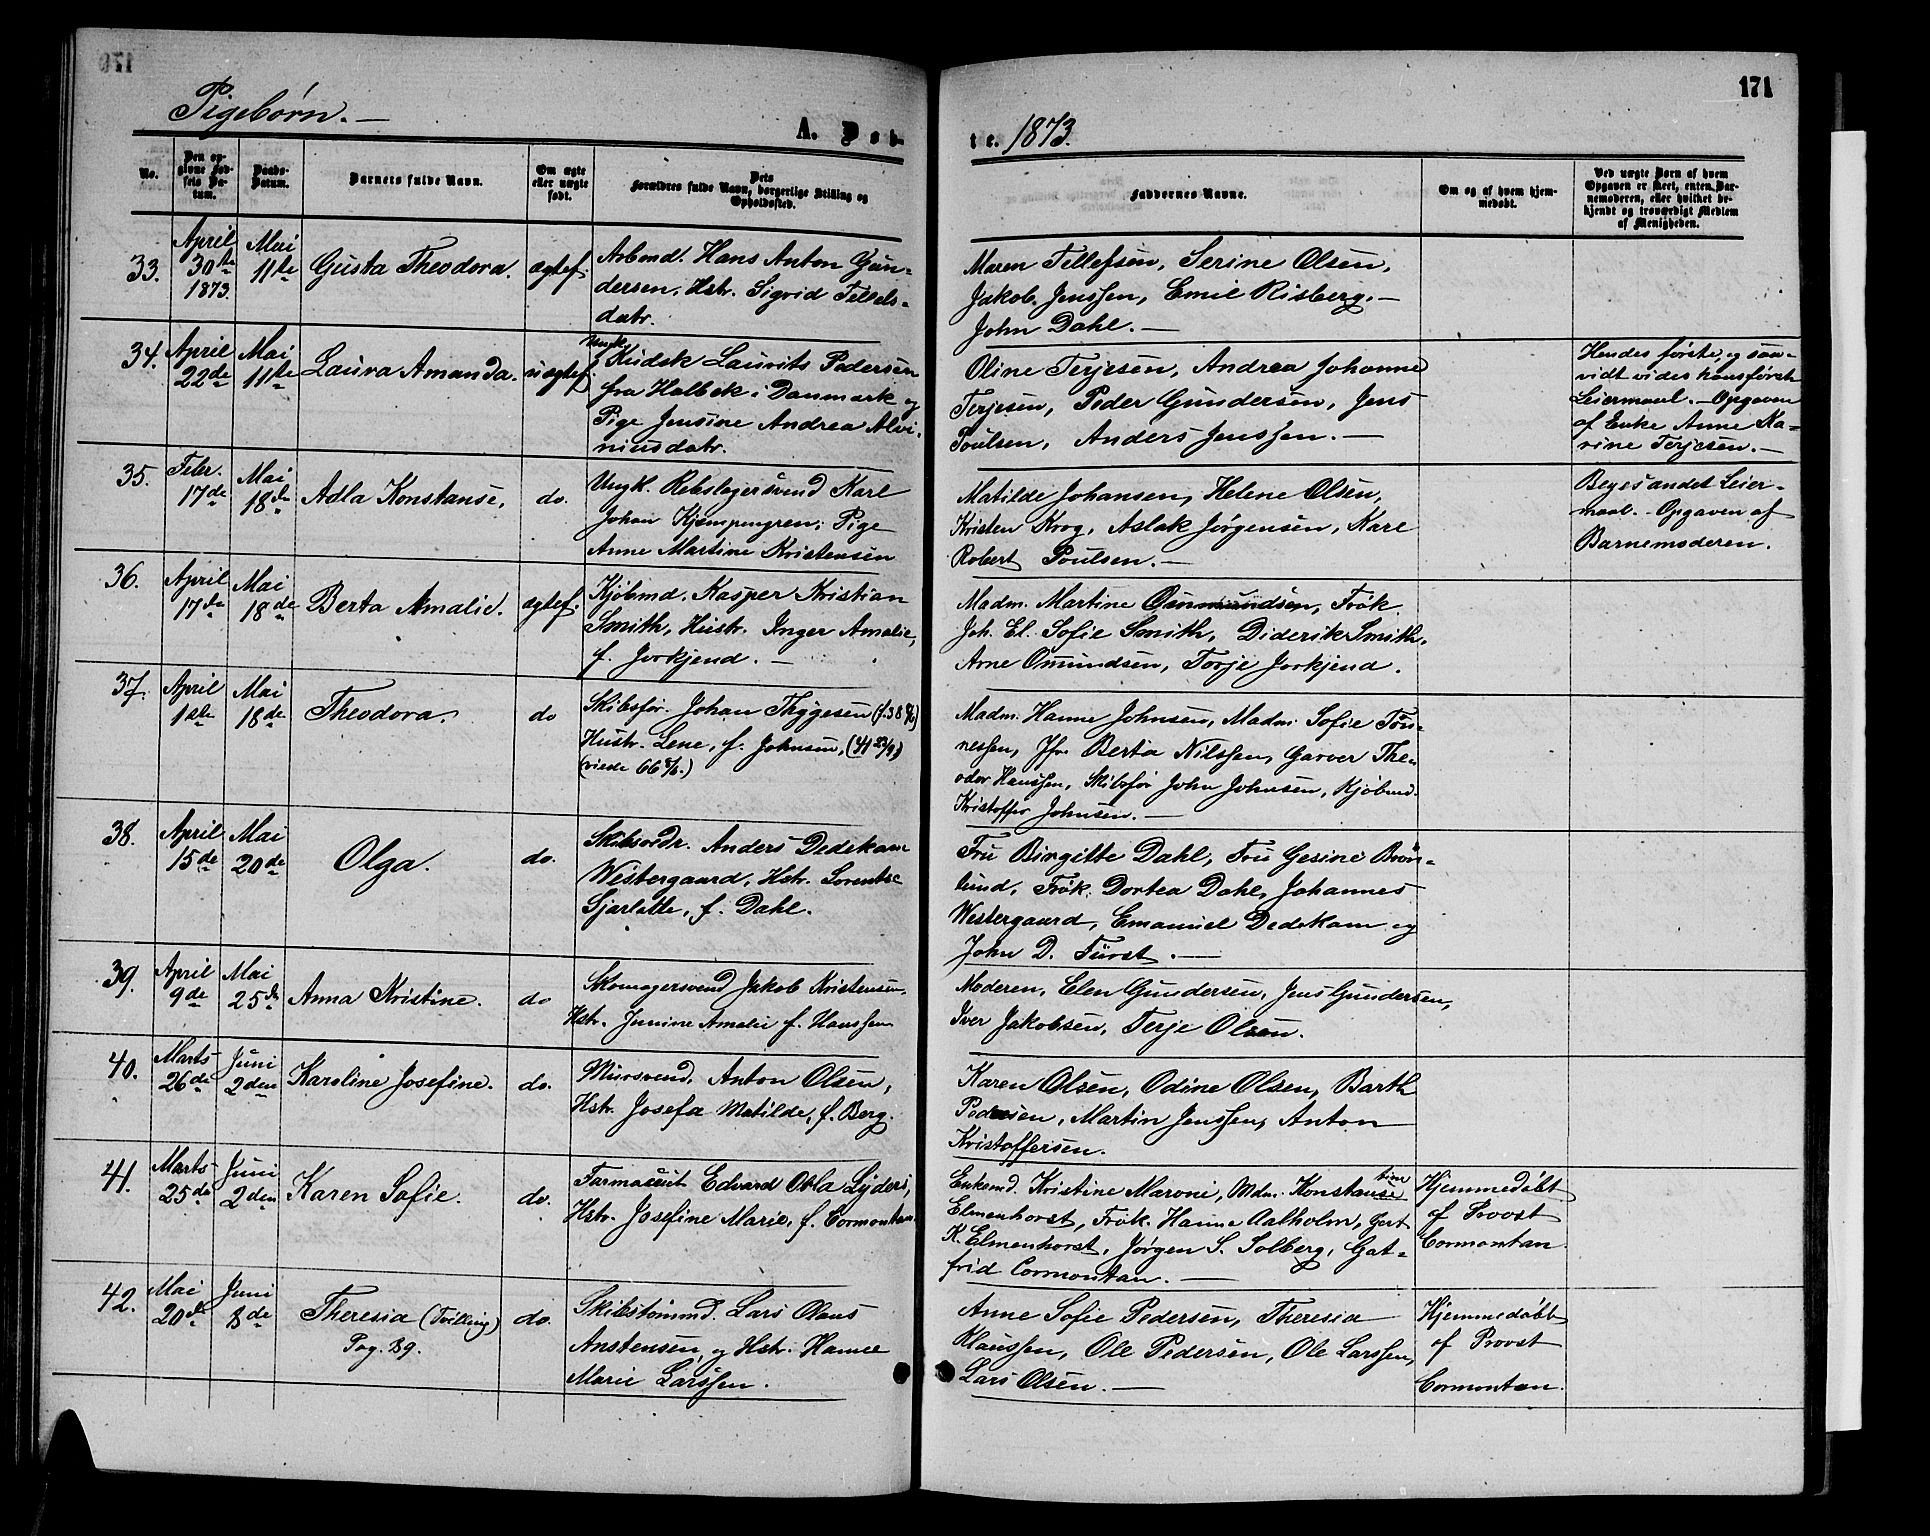 170
171
Pigebørn. —
A. Døb-
te. 1873.
No.
Den op-
givne Fød-
sels Da-
tum.
Daabs-
Datum.
Barnets fulde Navn.
Om ægte
eller uægte
født.
Dets
Forældres fulde Navn, borgerlige Stilling og
Opholdssted.
Faddernes Navne.
Om og af hvem hjem-
medøbt.
Ved uægte Børn af hvem
Opgaven er skeet, enten Bar-
nemoderen, eller hvilket be-
kjendt og troværdigt Medlem
af Menigheden.
33.
April
30te
1873.
Mai
11te
Gusta Theodora.
ægtef.
Arbmd. Hans Anton Gun-
dersen, Hstr. Sigrid Tellefs-
datr.
Maren Tellefsen, Serine Olsen,
Jakob Jenssen, Emil Risberg. —
John Dahl. —
34.
April
22de
Mai
11te
Laura Amanda.
uægtef.
Ungk.
Kudsk Laurits Pedersen
fra Holbek i Danmark og
Pige Jensine Andrea Alvi-
niusdatr.
Oline Terjesen, Andrea Johanne
Terjesen, Peder Gundersen, Jens
Poulsen, Anders Jenssen. —
Hendes første, og saa-
vidt vides hans første
Leiermaal. — Opgaven
af Enke Anne Ka-
rine Terjesen. —
35.
Febr.
17de
Mai
18de
Adla Konstanse.
do.
Ungk. Rebslagersvend Karl
Johan Kjempengren; Pige
Anne Martine Kristensen
Matilde Johansen, Helene Olsen,
Kristen Krog, Aslak Jørgensen, Karl
Robert Poulsen. —
Beges andet Leier-
maal. — Opgaven af
Barnemoderen.
36.
April
17de
Mai
18de
Berta Amalie.
ægtef.
Kjøbmd. Kasper Kristian
Smith, Hustr. Inger Amalie,
f. Jorkjend. —
Madm. Martine Osmundsen, Frøk.
Joh. El. Sofie Smith, Diderik Smith,
Arne Omundsen, Torje Jorkjend.
37.
April
1ste
Mai
18de
Theodora.
do
Skibsfør. Johan Thygesen
Hustr. Lene, f. Johnsen,
Madm. Hanne Johnsen, Madm. Sofie Tøn-
nessen, Jfr. Berta Nilssen, Garver The-
odor Hanssen, Skibsfør John Johnsen, Kjøbmd.
Kristoffer Johnsen. —
38.
April
15de
Mai
20de
Olga.
do.
Skibsredr. Anders Dedekam
Westergaard, Hstr. Lorentse
Sjarlotte, f. Dahl.
Fru Birgitte Dahl, Fru Gesine Brøn-
lund, Frøk. Dortea Dahl, Johannes
Westergaard, Emanuel Dedekam og
John D. Fürst. —
39.
April
9de
Mai
25de
Anna Kristine.
do
Skomagersvend Jakob Kristensen,
Hstr. Junine Amalie f. Hanssen
Moderen, Elen Gundersen, Jens Gundersen,
Iver Jakobsen, Terje Olsen.
40.
Marts
26de
Juni
2den
Karoline Josefine.
do.
Mursvend. Anton Olsen,
Hstr. Josefa Matilde, f. Berg.
Karen Olsen, Odine Olsen, Barth
Pedersen, Martin Jenssen, Anton
Kristoffersen.
41.
Marts
25de
Juni
2den
Karen Sofie.
do.
Farmaceut Edvard Obla Lyders,
Hstr. Josefine Marie, f. Cormontan.
Enkemd. Kristine Maroni, Mdm. Konstanse
tine
Elmenhorst, Frøk. Hanne Aalholm, Gert
K. Elmenhorst, Jørgen S. Solberg, Gat-
frid Cormontan. —
Hjemmedøbt
af Provst
Cormontan
42.
Mai
20de
Juni
8de
Theresia (Tvilling)
Pag. 89.
do.
Skibstømmd. Lars Olaus
Anstensen, og Hstr. Hanne
Marie Larssen.
Anne Sofie Pedersen, Theresia
Klaussen, Ole Pedersen, Ole Larssen,
Lars Olsen. —
Hjemmedøbt
af Provst
Cormontan.